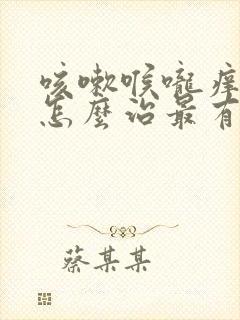 咳嗽喉嚨痒
怎麼治最有
蔡某某